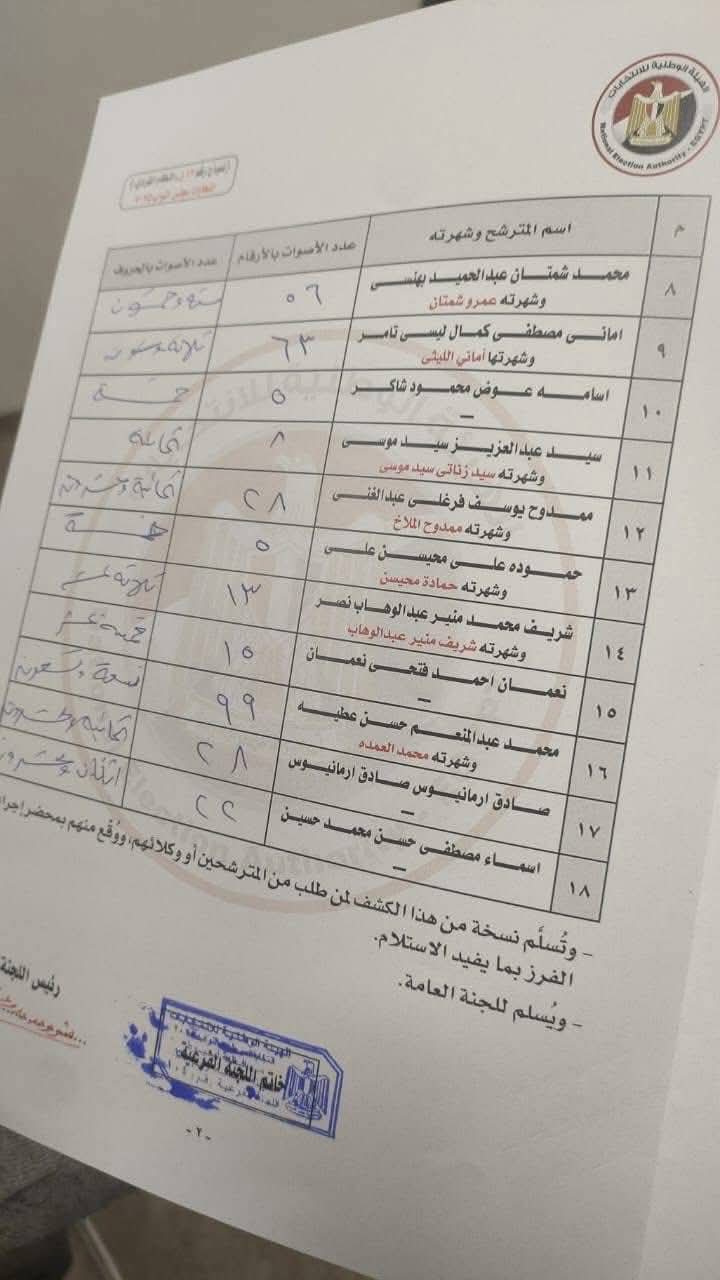 الهيئة الوطنية للانتخابات
National Election Authority - EGYPT
م اسم المترشح وشهرته عدد الأصوات بالأرقام عدد الأصوات بالحروف
٨ محمد شمتان عبدالحميد بهنسى ٥٦ ستة وخمسون
وشهرته عمرو شمتان
٩ امانى مصطفى كمال ليسى تامر ٦٣ ثلاثة وستون
وشهرتها أماني الليثى
١٠ اسامه عوض محمود شاكر ٥ خمسة
—
١١ سيد عبدالعزيز سيد موسى ٨ ثمانية
وشهرته سيد زناتى سيد موسى
١٢ ممدوح يوسف فرغلى عبدالغنى ٢٨ ثمانية وعشرون
وشهرته ممدوح الملاخ
١٣ حموده على محيسن على ٥ خمسة
وشهرته حمادة محيسن
١٤ شريف محمد منير عبدالوهاب نصر ١٣ ثلاثة عشر
وشهرته شريف منير عبدالوهاب
١٥ نعمان احمد فتحى نعمان ١٥ خمسة عشر
—
١٦ محمد عبدالمنعم حسن عطيه ٩٩ تسعة وتسعون
وشهرته محمد العمده
١٧ صادق ارمانيوس صادق ارمانيوس ٢٨ ثمانية وعشرون
—
١٨ اسماء مصطفى حسن محمد حسين ٢٢ اثنان وعشرون
—
– وتُسلَّم نسخة من هذا الكشف لمن طلب من المترشحين أو وكلائهم، ووُقع منهم بمحضر إجرا
الفرز بما يفيد الاستلام.
– ويُسلم للجنة العامة.
رئيس اللجنة
الهيئة الوطنية للانتخابات
خاتم اللجنة الفرعية
- ٢ -